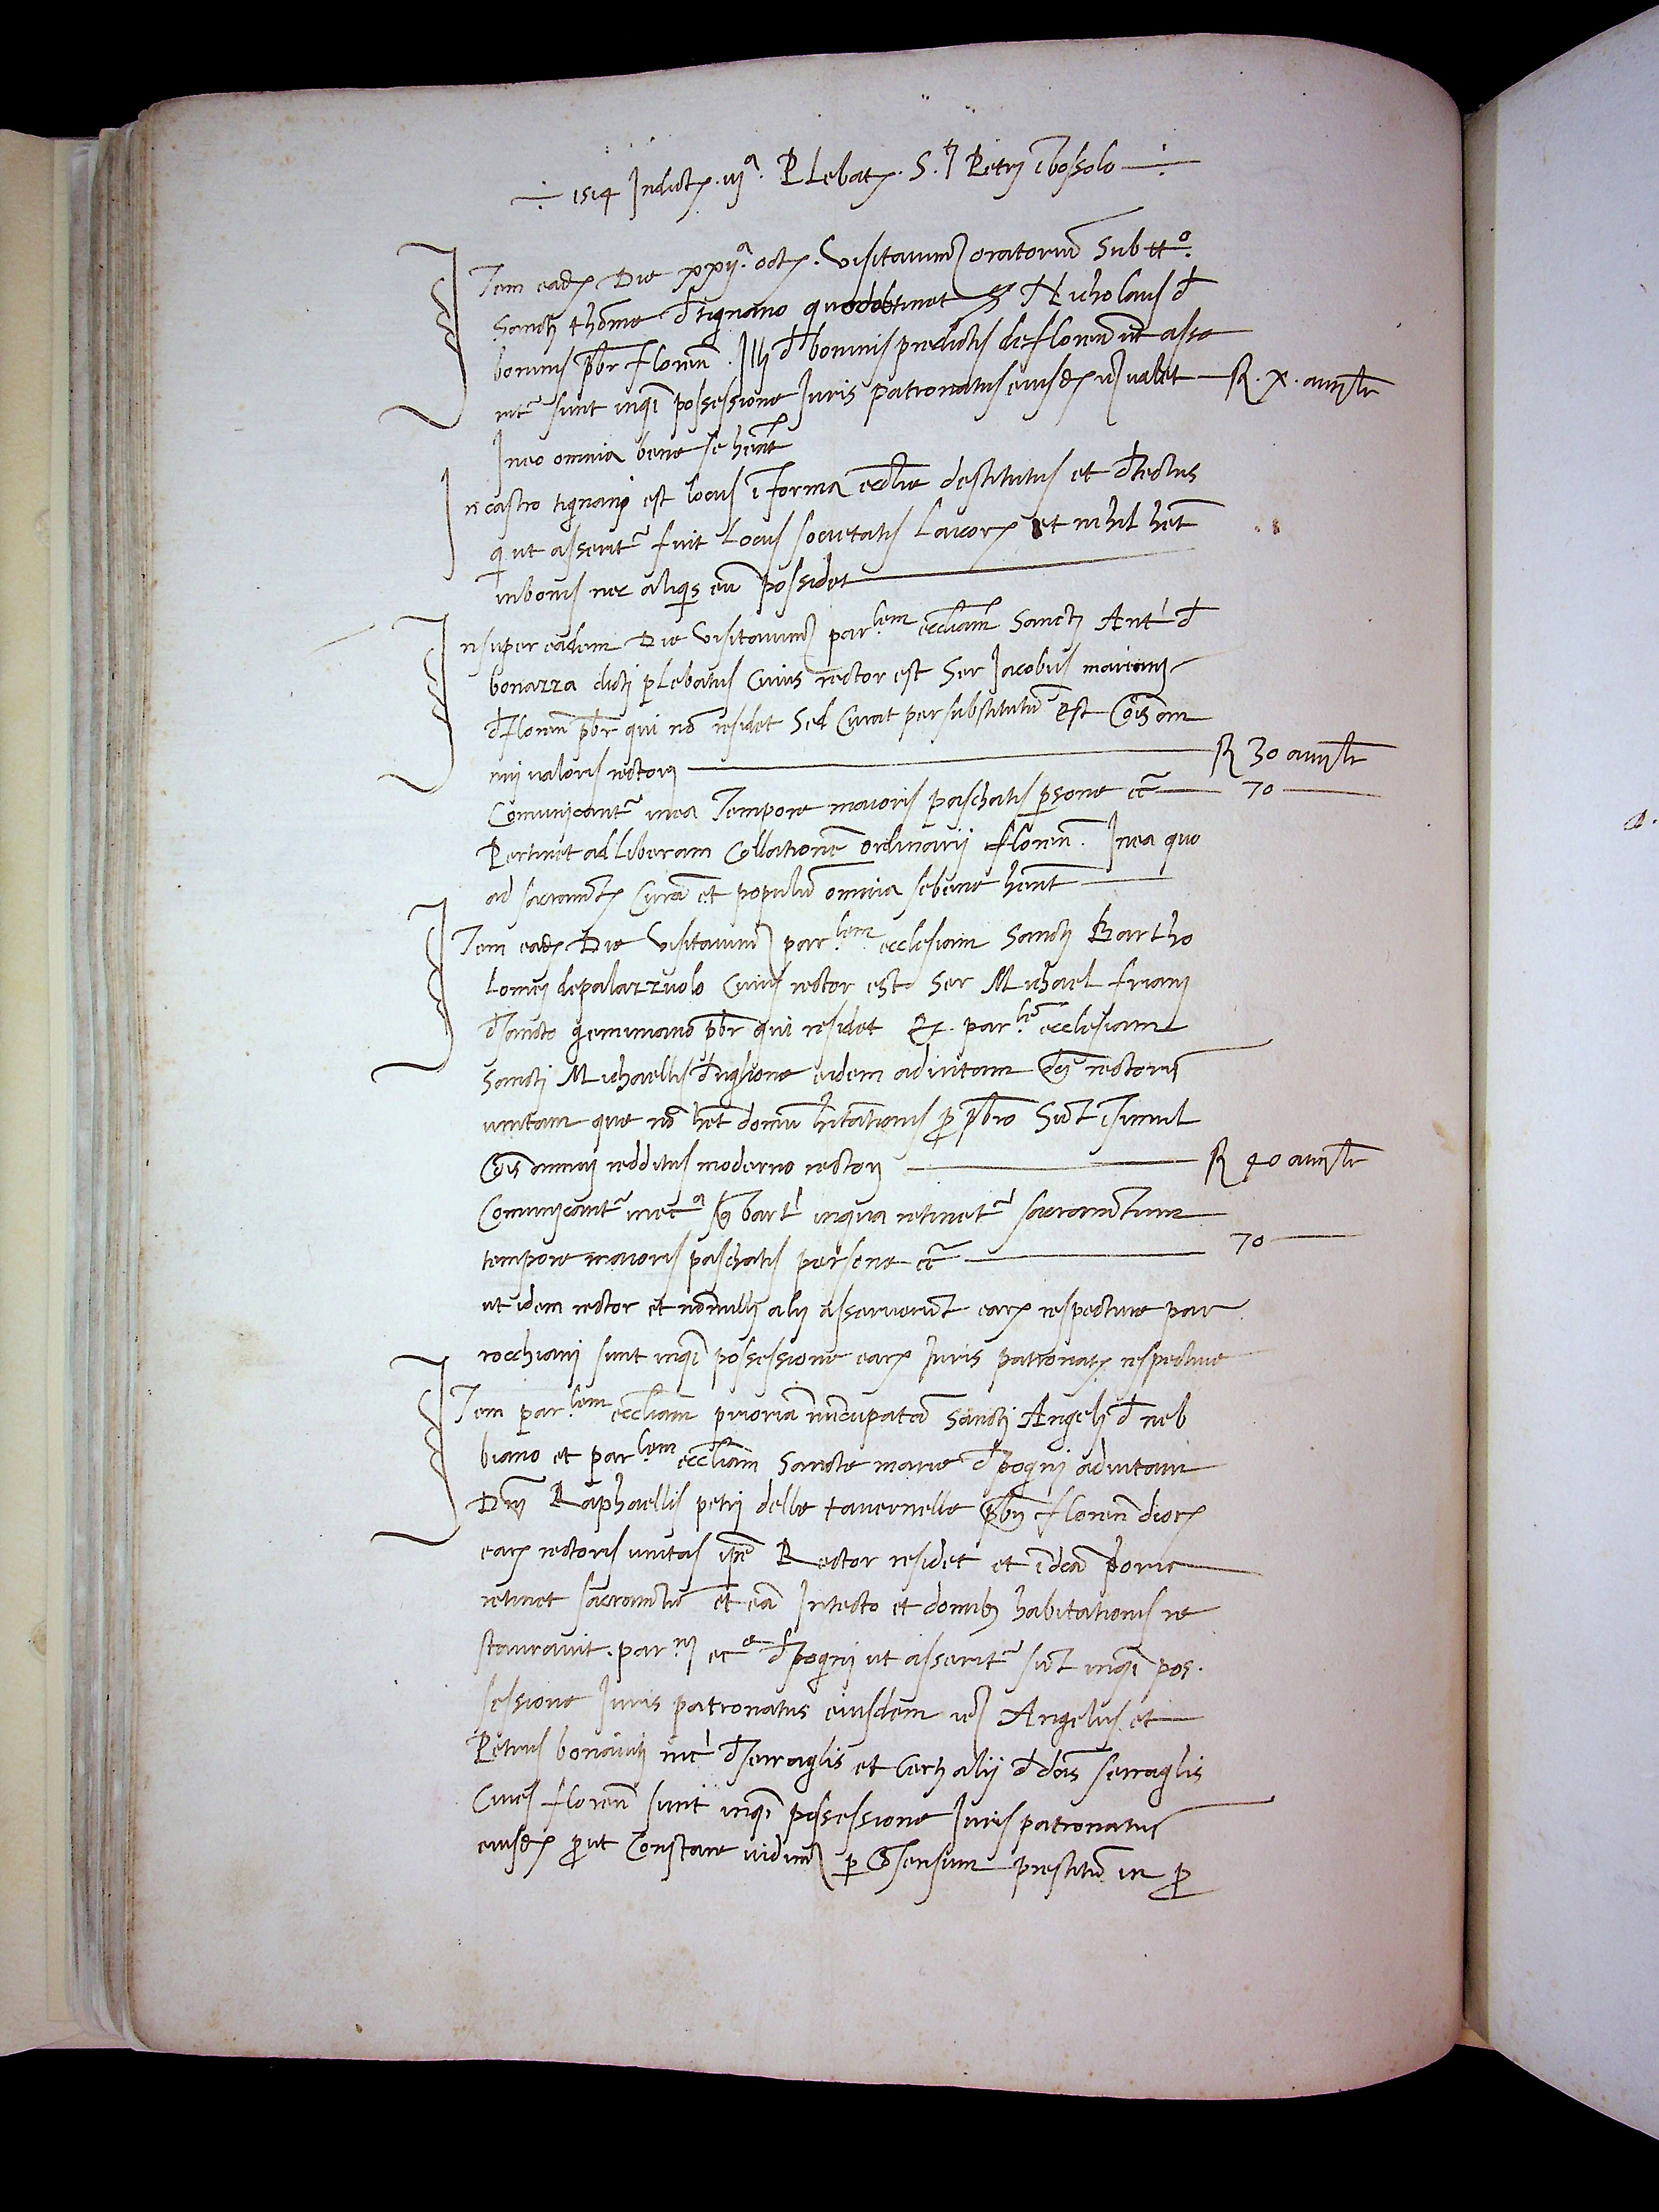 1514 Indict. iij.a Plebat. S.ti Petri ī bossolo
Item eadē Die xxij.a oct. Visitauimus oratorium Sub tt.o
Sancti thome d tignano quod obtinet Nicholaus d
boninis pbr Floren. Illi d boninis predictis de Floren ut asse
rit sunt in qsi possessione Iuris patronatus eiusdē valet R. x. annuatī
In eo omnia bene se hent
In castro tignani est locus ī forma ecclie destitutus et dtectus
q ut asserit fuit Locus societatis Laicor et nihil het
in bonis nec aliqis eu possidet
Insuper eadem Die Visitauimus par.lem eccliam Sancti Ant d
bonazza dicti plebatus Cuius rector est Ser Iacobus mariani
d Floren pbr qui no residet Sed Curat per substitutu Est Cois an
nui valoris rectori R 30 annuatī
Comunicantr in ea Tempore maioris paschatis psone cc 70
Pertinet ad Liberam Collatione ordinarij Floren. In ea quo
ad sacramt Cura et populu omnia se bene hent
Item eadē Die Visitauimus par.lem ecclesiam Sancti Bartho
Lomei de palazzuolo Cuius rector est Ser Michael friani
d Sancto geminiano pbr qui residet Et par.le ecclesiam
Sancti Michaellis d uglione eidem ad vitam dci rectoris
unitam que no het domu hitationis p pbro Sut isimul
Cois annui redditus moderno rectori R 40 annuatī
Comunicantr in ec.a sci bart in qua retinetr sacramentum
tempore maioris paschatis persone cc 70
ut idem rector et nonnulli alij asseruerut ear respectiue par
rocchiani sunt in qsi possessione ear Iuris patronat respectiue
Item par.lem eccliam prioria nucupata Sancti Angeli d neb
biano et par.lem eccliam Sancte marie d pogni ad vitam
Dni Raphaellis petri delle tauernelle pbri Floren dioc
ear rectoris unitas ipe Rector residet et ī dca prioria
retinet sacramtu et ea In tecto et domibus habitationis re
stauravit. par.ni ec.e d pogni ut asseritr sut in qsi pos
sessione Iuris patronatus eiusdem Angelus et
Petrus bonaiuti nic d Serraglis et Ceteri alij d dcis serraglis
Ciues Floren sunt in qsi possessione Iuris patronatus
eiusdē put Constare uidimus p Cosensum prestitu in p